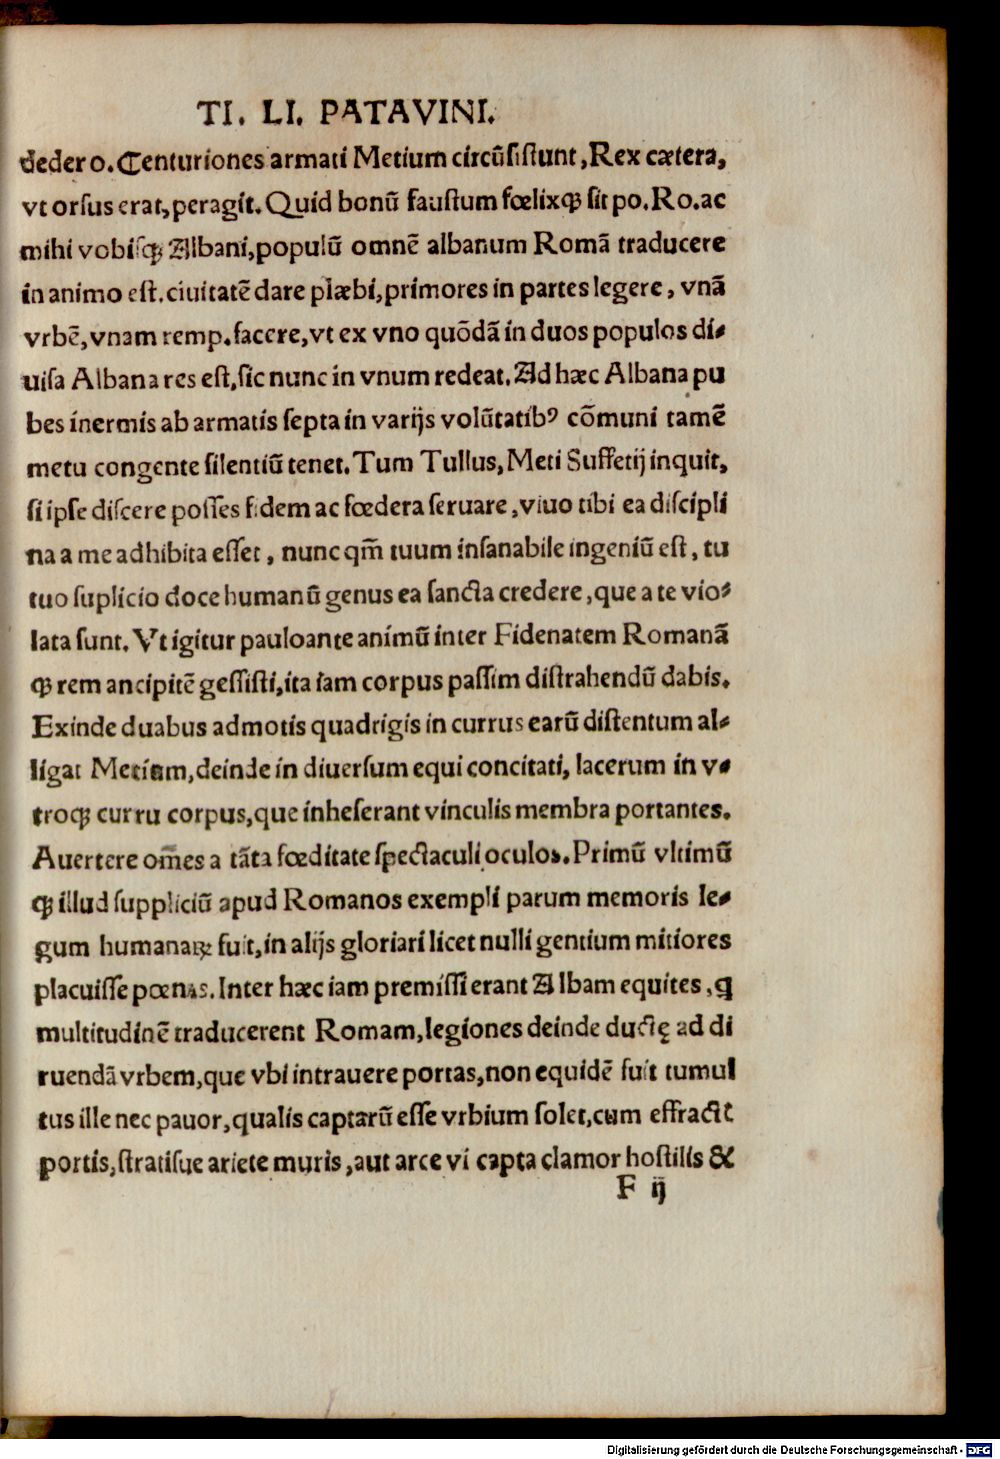 TI. LI. PATAVINI.
dedero. Centuriones armati Metium circũsistunt, Rex cætera,
vt orsus erat, peragit. Quid bonũ faustum fœlixqꝫ sit po. Ro. ac
mihi vobisqꝫ Albani, populũ omnẽ albanum Romã traducere
in animo est. ciuitatẽ dare plæbi, primores in partes legere, vnã
vrbẽ, vnam remp. facere, vt ex vno quõdã in duos populos di⸗
uisa Albana res est, sic nunc in vnum redeat. Ad hæc Albana pu
bes inermis ab armatis septa in varijs volũtatibꝰ cõmuni tamẽ
metu congente silentiũ tenet. Tum Tullus, Meti Suffetij inquit,
si ipse discere posses fidem ac fœdera seruare, viuo tibi ea discipli
na a me adhibita esset, nunc qm̃ tuum insanabile ingeniũ est, tu
tuo suplicio doce humanũ genus ea sancta credere, que a te vio⸗
lata sunt. Vt igitur pauloante animũ inter Fidenatem Romanã
qꝫ rem ancipitẽ gessisti, ita iam corpus passim distrahendũ dabis.
Exinde duabus admotis quadrigis in currus earũ distentum al⸗
ligat Metium, deinde in diuersum equi concitati, lacerum in v⸗
troqꝫ curru corpus, que inheserant vinculis membra portantes.
Auertere om̃es a tãta fœditate spectaculi oculos. Primũ vltimũ
qꝫ illud suppliciũ apud Romanos exempli parum memoris le⸗
gum humanaꝝ fuit, in alijs gloriari licet nulli gentium mitiores
placuisse pœnas. Inter hæc iam premissi erant Albam equites, q̃
multitudinẽ traducerent Romam, legiones deinde ductę ad di
ruendã vrbem, que vbi intrauere portas, non equidẽ fuit tumul
tus ille nec pauor, qualis captarũ esse vrbium solet, cum effractꝭ
portis, stratisue ariete muris, aut arce vi capta clamor hostilis &
F ij
Digitalisierung gefördert durch die Deutsche Forschungsgemeinschaft - DFG